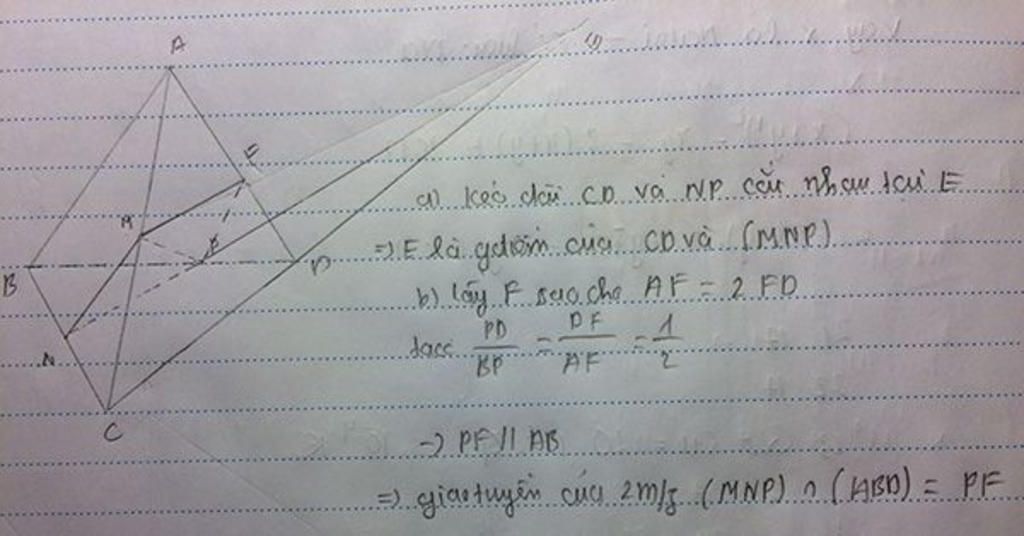 A
F
M
P
B
D
N
C
a) kéo dài CD và NP cắt nhau tại E
=> E là gđiểm của CD và (MNP)
b) lấy F sao cho AF = 2 FD
ta có PD/BP = DF/AF = 1/2
-> PF // AB
=> giao tuyến của 2m/f (MNP) ∩ (ABD) = PF